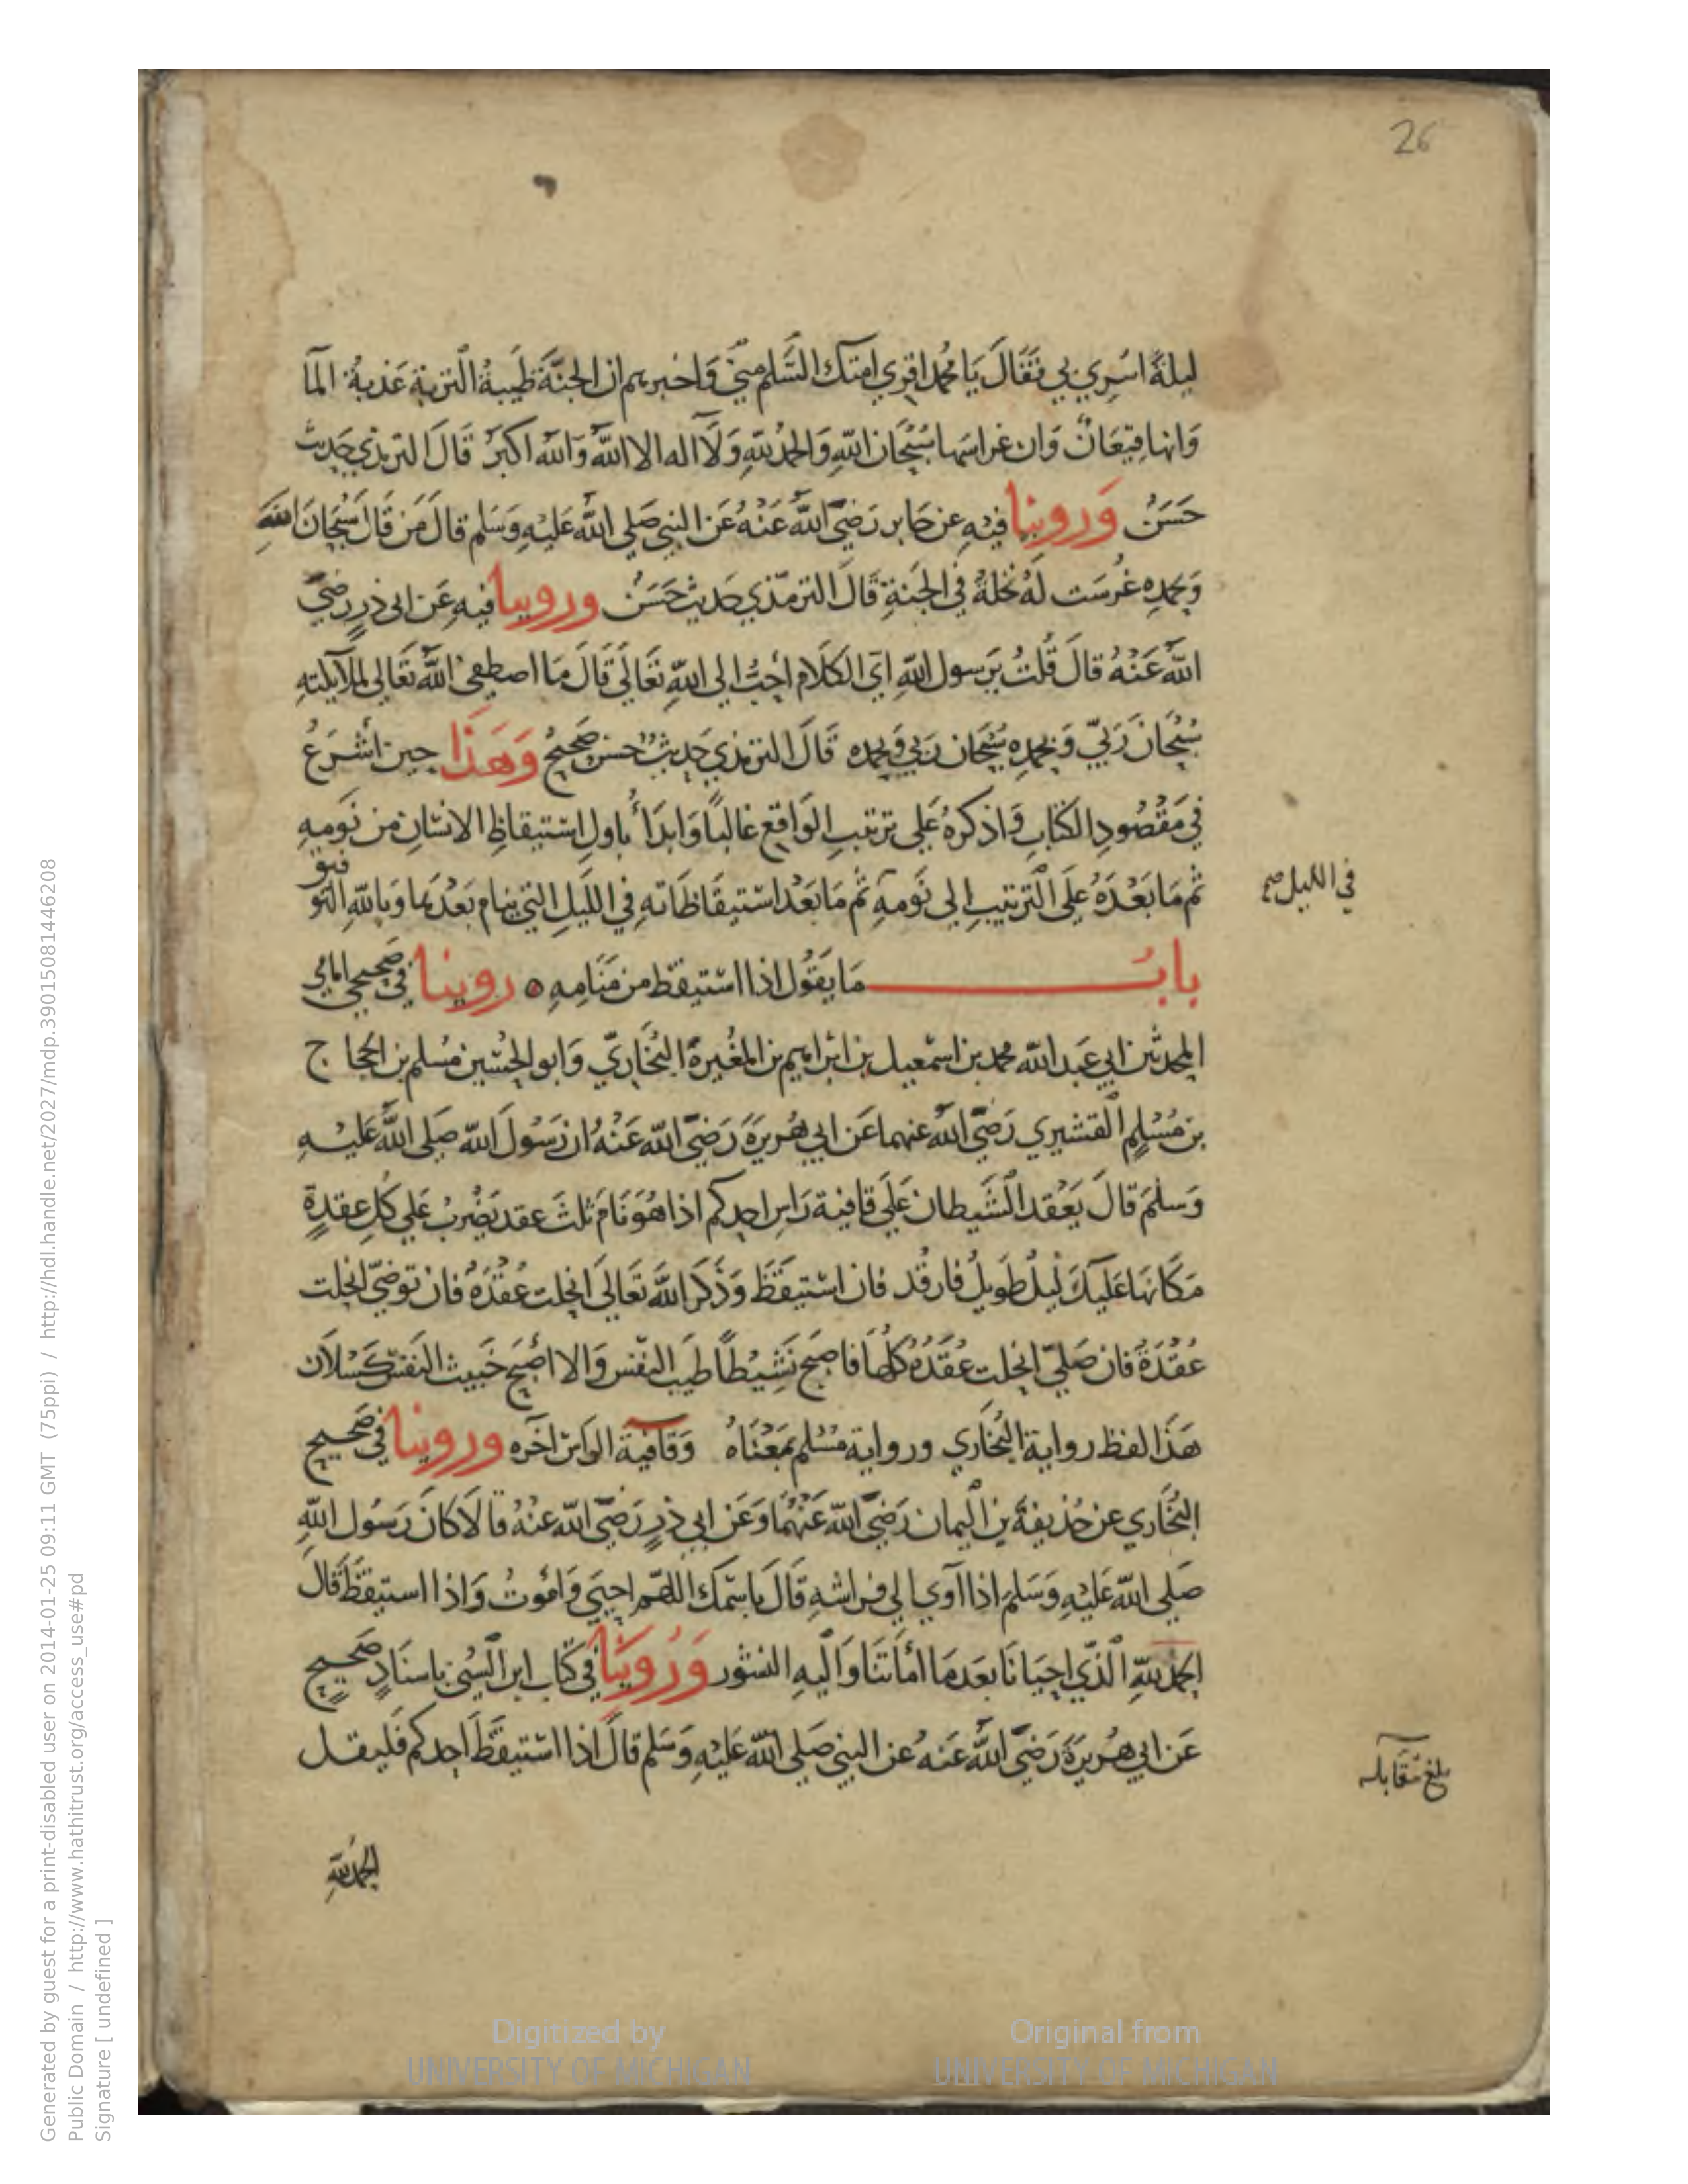 26
ليلةً اسُرِي بي فَقَالَ يَا مُحمد اقري امتك السَّلم مِنّي وَاخبرهم ان الجنَّةَ طَيبةُ التربة عَذبةُ المآ
وَانها قِيعَانٌ وَان غراسَها سُبْحَان اللهِ وَالحمدُ للهِ وَلَآ اله الا اللهُ وَالله اكبرُ قَالَ الترمذي حَديث
حَسَنٌ وَروينا فيْهِ عن جَابر رَضِيَ اللهُ عَنْهُ عَن النبي صَلى اللهُ عَليْهِ وَسَلم قال مَن قَال سُبْحَانَ اللهِ
وَبحمدِه غُرسَت لَهُ نخلةٌ في الجَنةِ قَالَ الترمذي حَديث حَسَنٌ وروينا فيهِ عَن ابى ذرٍ رضيَ
اللهُ عَنْهُ قالَ قُلتُ يَرَسول اللهِ اَيّ الكلَام اَحبُّ الى اللهِ تعَالَى قَالَ مَا اصطفى اللهُ تعَالى لملآيكتهِ
سُبْحَانَ رَبيّ وَبحمدِه سُبْحَان رَبي وَبحمده قَالَ الترمذي حَديثٌ حسن صَحيحٌ وَهَذَا حين اَشْرَعُ
في مَقْصُودِ الكتابِ وَاذكرهُ عَلى ترتيبِ الوَاقع غالبًا وَابدَأُ باولِ اسْتيقاظِ الانسَان من نَومِهِ
ثم مَا بَعْدَهُ عَلَى الترتيبِ الى نَومهِ ثم مَا بَعْدَ اسْتيقَاظَاته في اللَيلِ التي ينام بَعْدهَا وَبالله التو
فيق
في الليل صح
بابُ مَا يَقُول اذا اسْتيقظ من مَنَامِهِ ه روينا في صَحيحي امامي
المحدثين ابي عَبد الله محمد بن اسْمعيل بن ابْراهيم بن المغيرة البُخَاريّ وَابو الحُسَين مُسْلم بن الحجاج
بن مُسْلِمٍ القشيري رَضيَ اللهُ عنهما عَن ابي هُريرَةَ رَضيَ الله عَنْهُ ان رَسُولَ الله صَلى اللهُ عَليْهِ
وَسَلمَ قالَ يَعْقد الشَيطان عَلَى قافية رَاسِ احدِكم اذا هُوَ نَامَ ثلثَ عقد يَضْربُ عَلى كل عقدةٍ
مَكانهَا عَليْكَ ليْلٌ طَويلٌ فارقُد فان اسْتيقَظَ وَذَكَرَ اللهَ تَعَالَى انحلت عُقْدَةٌ فان توضّى انحلت
عُقْدَةٌ فان صَلىّ انحلت عُقَدُهُ كلُّهَا فاصبح نَشِيْطًا طيبَ النفس وَالا اصْبَحَ خَبيث النفس كسْلَان
هَذَا لفظ رواية البُخَاري ورواية مُسْلم بمَعْنَاهُ وَقَافية الراس آخره وروينا في صَحيح
البُخَاري عن حُذيفةَ بن اليمان رَضيَ الله عَنْهُمَا وَعَن ابي ذرٍ رَضيَ الله عنْهُ قالَا كانَ رَسُول اللهِ
صَلى الله عَليْهِ وَسَلم اذا آوى الى فراشهِ قَالَ باسْمكَ اللهم احيَى وَامُوتُ وَاذا استيقظَ قَالَ
الحمد للهِ الَّذي احيَانَا بعدَ مَا امَاتَنَا وَاليهِ النشور وَرُوينَا في كتاب ابن السُّني باسنَادٍ صَحيحٍ
عَن ابي هُريرَةَ رَضيَ اللهُ عَنهُ عن النبي صَلى الله عَليْهِ وَسَلم قالَ اذا اسْتيقَظَ احدكم فَليقل
بلغ مقَابله
الحمد للهِ
Digitized by
UNIVERSITY OF MICHIGAN
Original from
UNIVERSITY OF MICHIGAN
Generated by guest for a print-disabled user on 2014-01-25 09:11 GMT (75ppi) / http://hdl.handle.net/2027/mdp.39015081446208
Public Domain / http://www.hathitrust.org/access_use#pd
Signature [ undefined ]